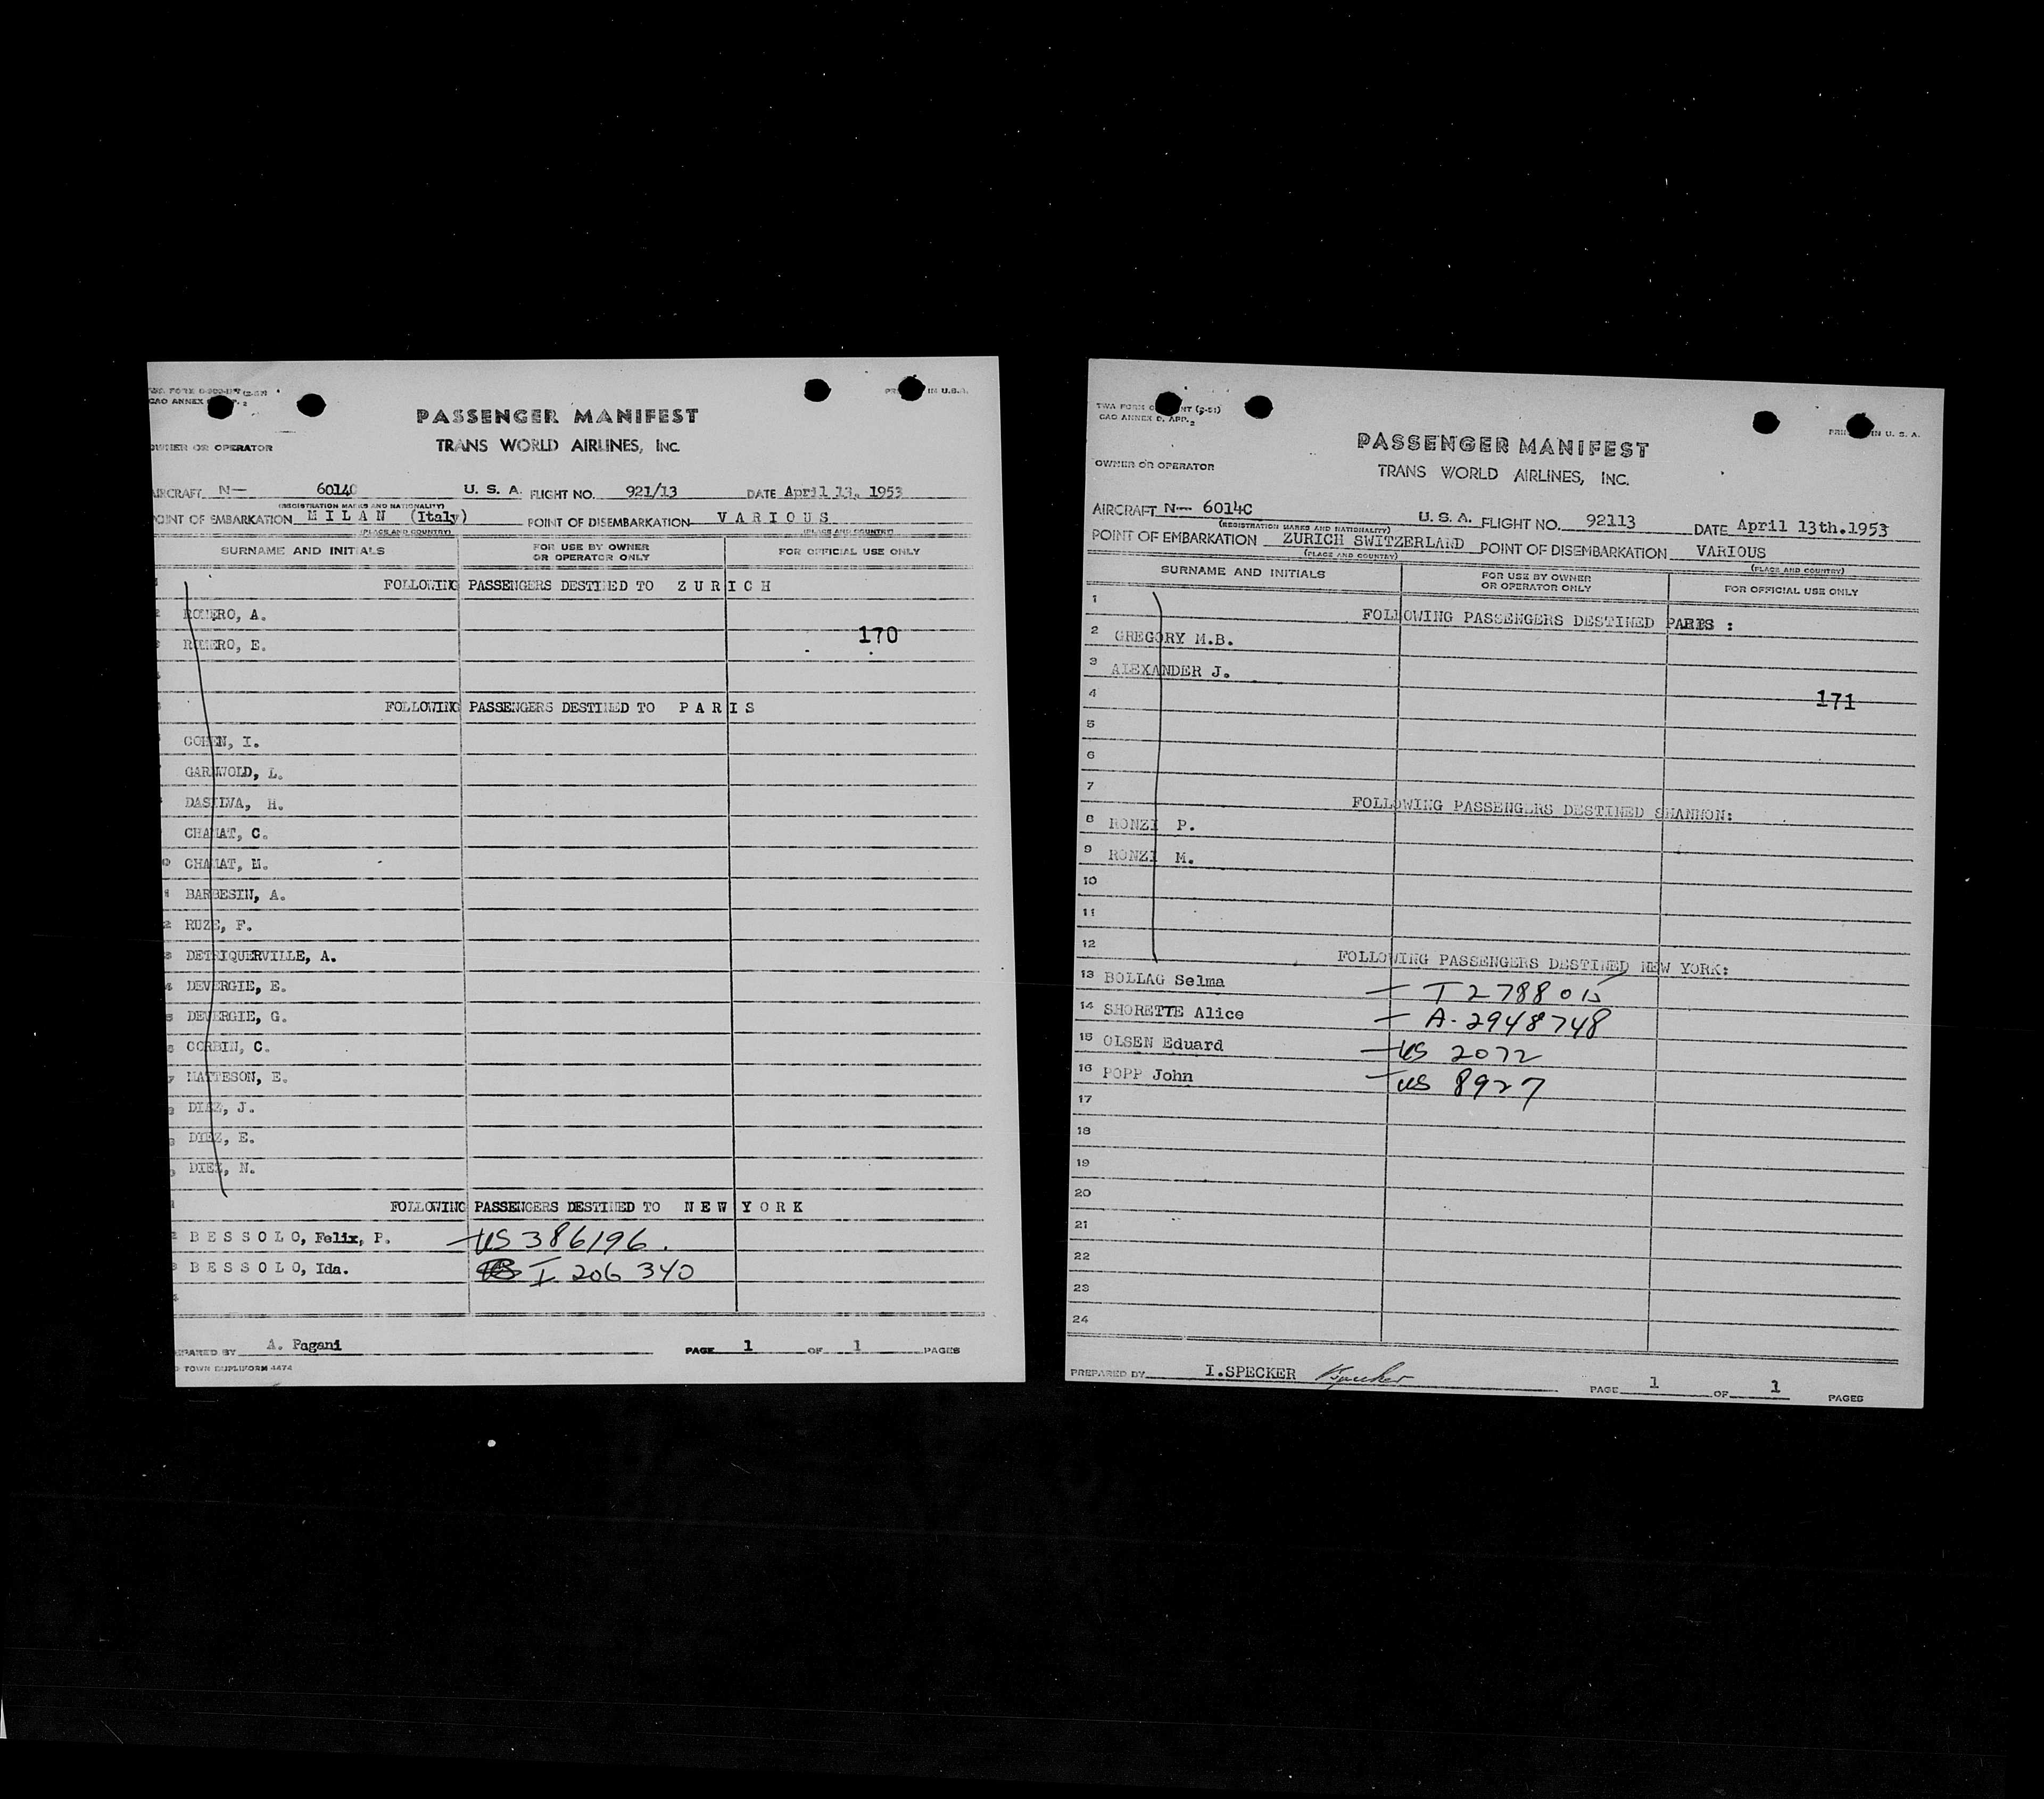 CAO ANNEX
PRINTED IN U.S.A.
PASSENGER MANIFEST
OWNER OR OPERATOR
TRANS WORLD AIRLINES, INC.
AIRCRAFT N— 6014C U. S. A. FLIGHT NO. 921/13 DATE April 13, 1953
(REGISTRATION MARKS AND NATIONALITY)
POINT OF EMBARKATION MILAN (Italy) POINT OF DISEMBARKATION VARIOUS
(PLACE AND COUNTRY) (PLACE AND COUNTRY)
SURNAME AND INITIALS FOR USE BY OWNER OR OPERATOR ONLY FOR OFFICIAL USE ONLY
FOLLOWING PASSENGERS DESTINED TO ZURICH
ROMERO, A.
ROMERO, E.
170
FOLLOWING PASSENGERS DESTINED TO PARIS
COHEN, I.
GARWOLD, L.
DASILVA, H.
CHAMAT, C.
CHAMAT, M.
BARBESIN, A.
RUZE, F.
DETRIQUERVILLE, A.
DEVERGIE, E.
DEVERGIE, G.
CORBIN, C.
MATTESON, E.
DIEZ, J.
DIEZ, E.
DIEZ, N.
FOLLOWING PASSENGERS DESTINED TO NEW YORK
BESSOLO, Felix, P. — US 386196.
BESSOLO, Ida. I 206 340
PREPARED BY A. Pagani PAGE 1 OF 1 PAGES
TOWN DUPLIFORM 4474
TWA FORM (2-51)
CAO ANNEX 9, APP. 2
PRINTED IN U. S. A.
PASSENGER MANIFEST
OWNER OR OPERATOR
TRANS WORLD AIRLINES, INC.
AIRCRAFT N— 6014C U. S. A. FLIGHT NO. 92113 DATE April 13th.1953
(REGISTRATION MARKS AND NATIONALITY)
POINT OF EMBARKATION ZURICH SWITZERLAND POINT OF DISEMBARKATION VARIOUS
(PLACE AND COUNTRY) (PLACE AND COUNTRY)
SURNAME AND INITIALS FOR USE BY OWNER OR OPERATOR ONLY FOR OFFICIAL USE ONLY
1 FOLLOWING PASSENGERS DESTINED PARIS :
2 GREGORY M.B.
3 ALEXANDER J.
4 171
5
6
7 FOLLOWING PASSENGERS DESTINED SHANNON:
8 RONZI P.
9 RONZI M.
10
11
12 FOLLOWING PASSENGERS DESTINED NEW YORK:
13 BOLLAG Selma — I 2788015
14 SHORETTE Alice — A-2948748
15 OLSEN Eduard — US 2072
16 POPP John — US 8927
17
18
19
20
21
22
23
24
PREPARED BY I.SPECKER Specker PAGE 1 OF 1 PAGES